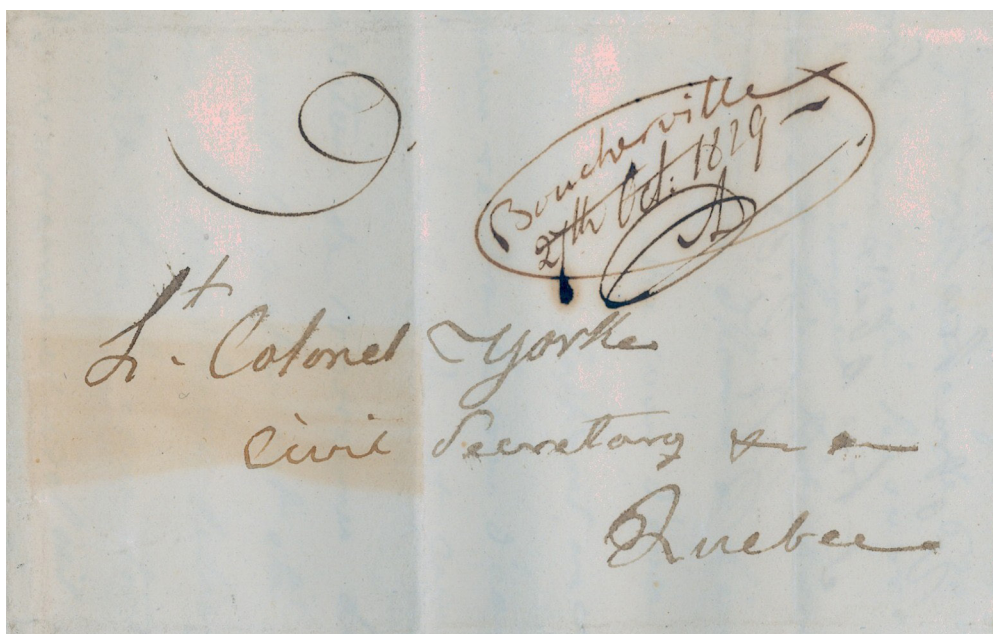 Boucherville
27th Oct. 1829
A
Lt. Colonel Yorke
Civil Secretary &
Quebec